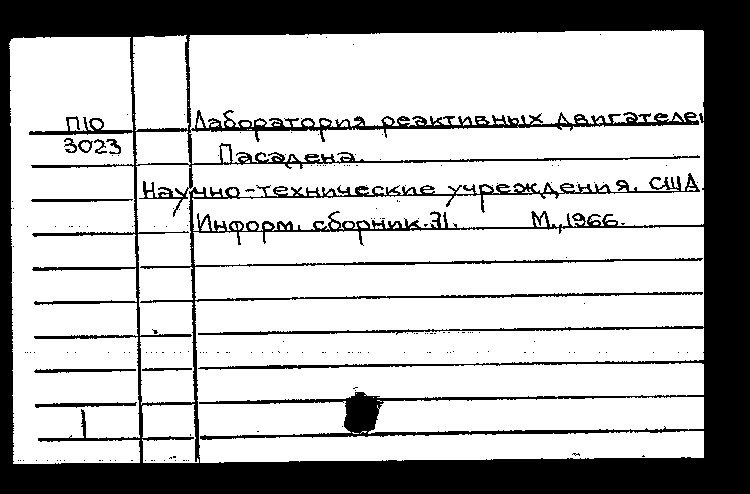 П10 Лаборатория реактивных двигателе
3023 Пасадена.
Научно-технические учреждения. США.
Информ. сборник.31. М.,1966.